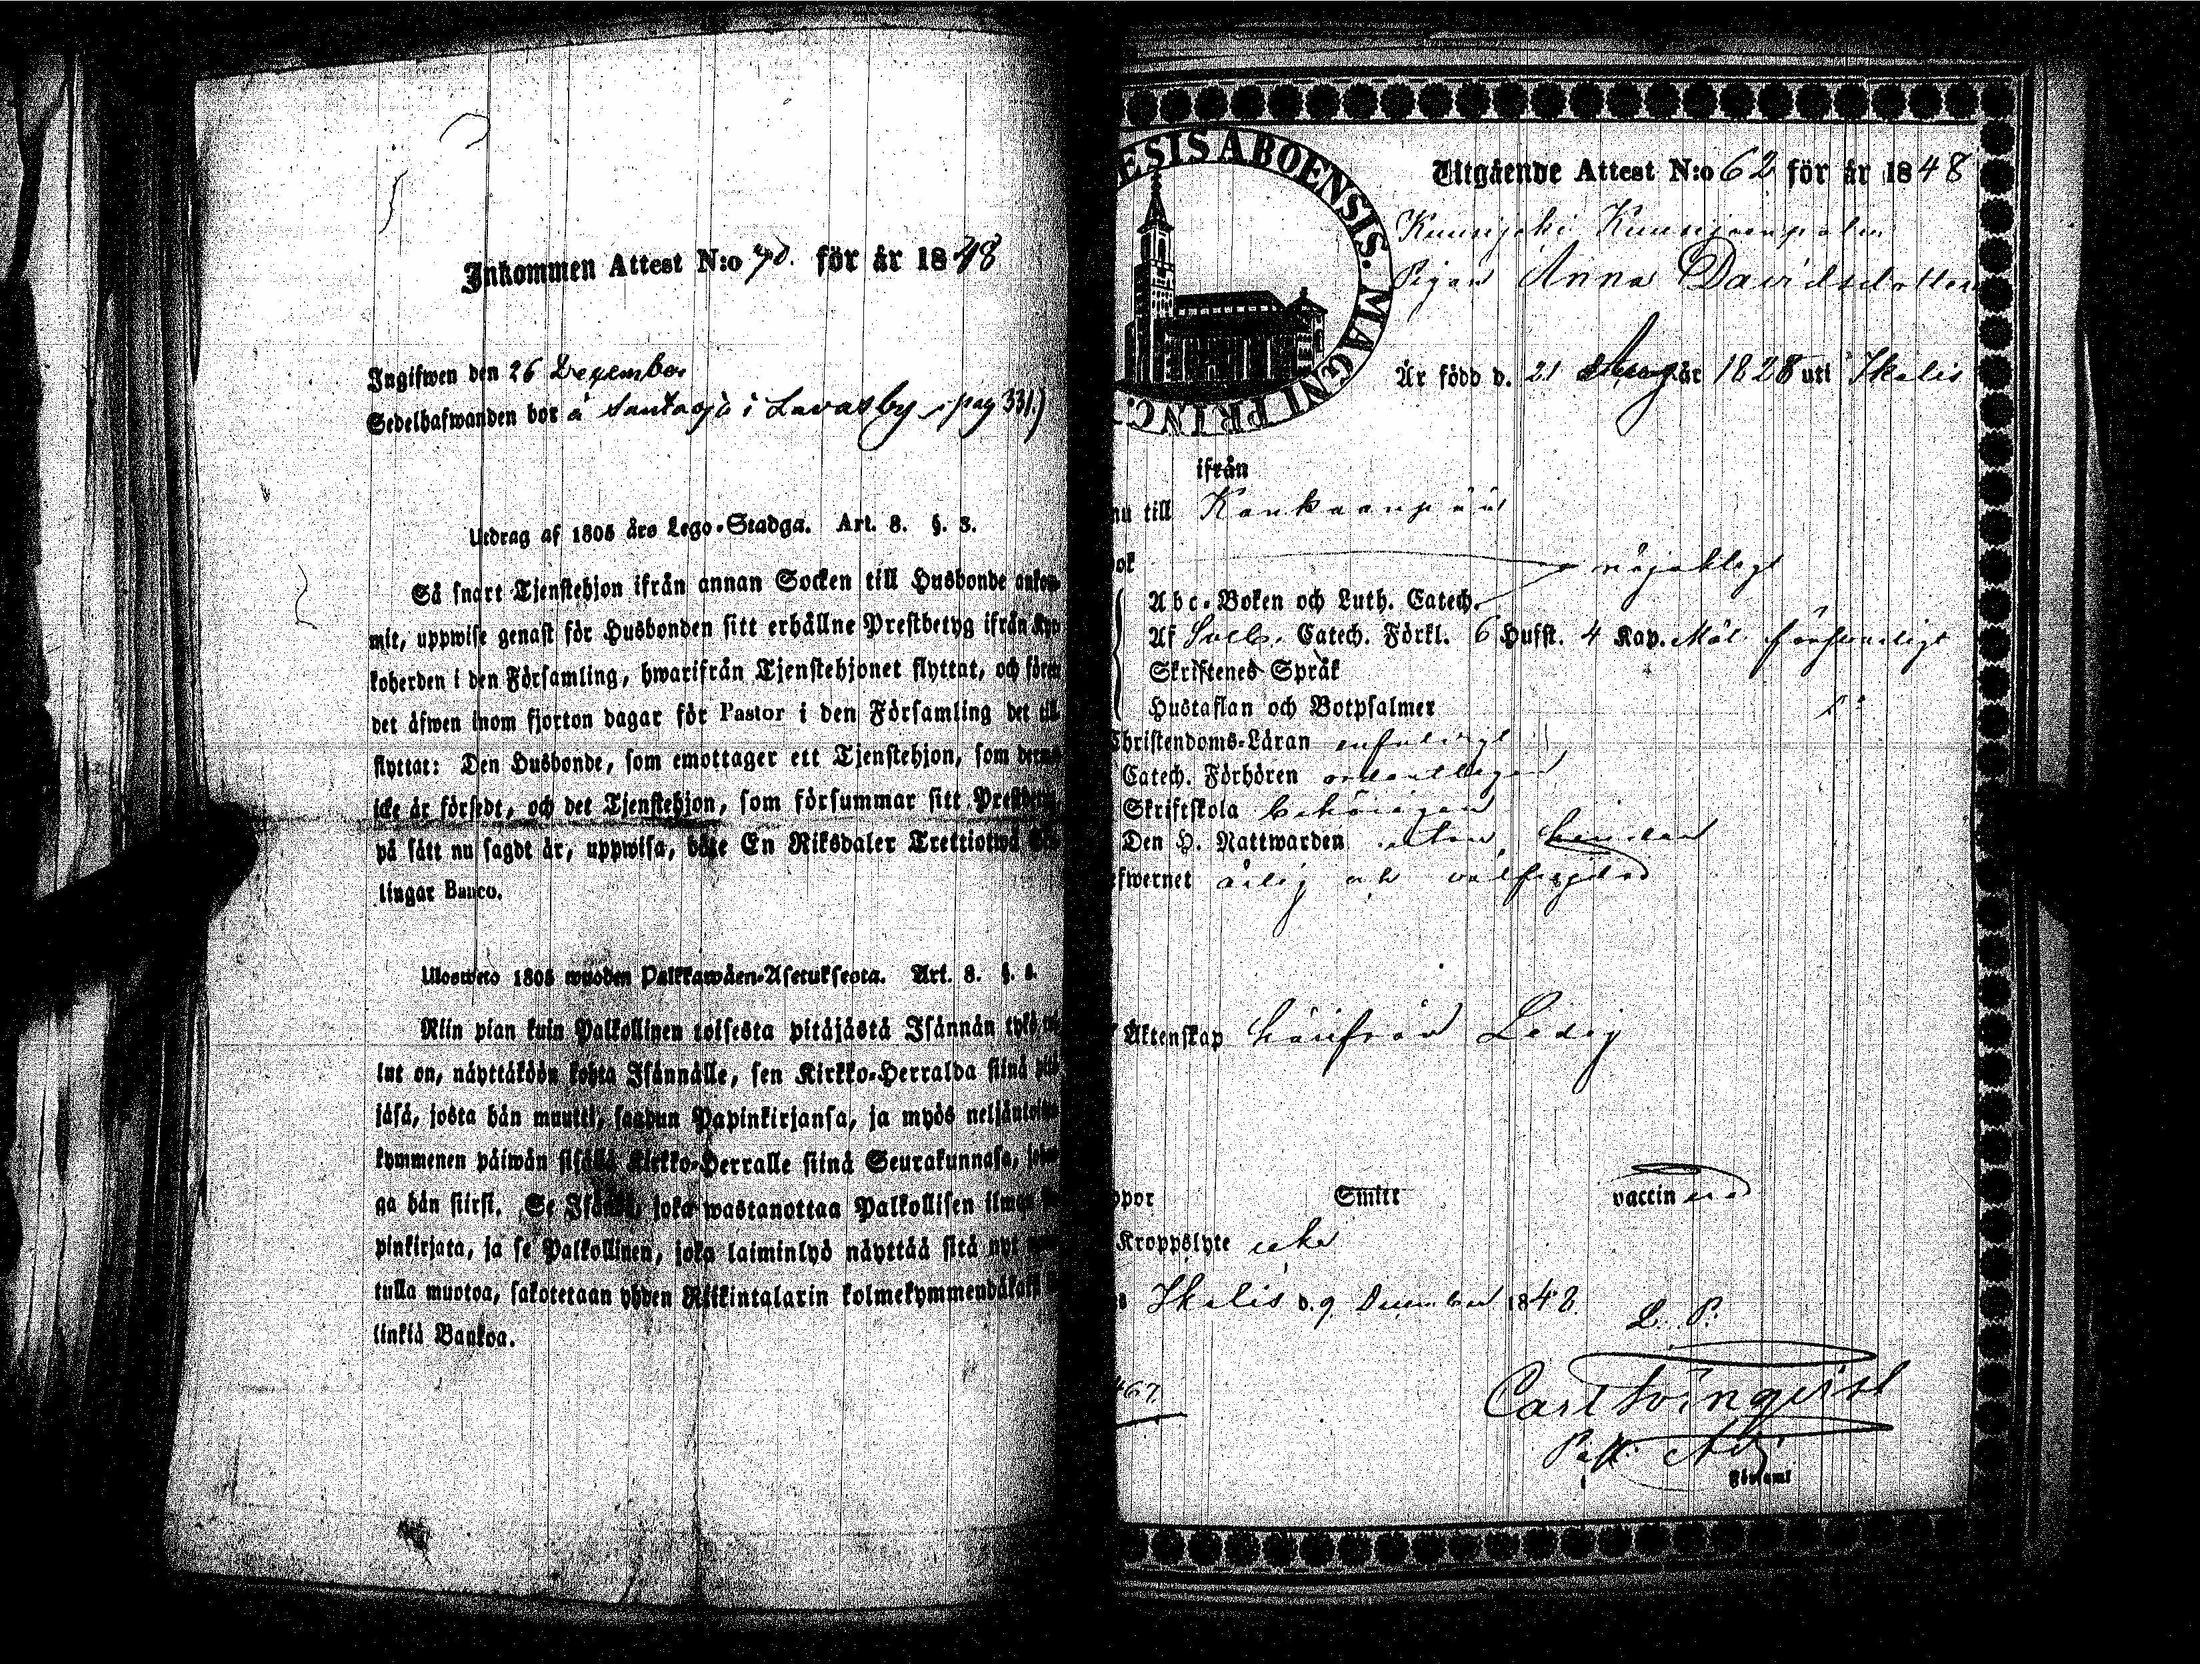 Inkommen Attest N:o 70. för år 1848
Ingifwen den 26 Dezember
Sedelhafwanden bor å Santaoja i Lavasby (pag 331.)
Utdrag af 1805 års Lego-Stadga. Art. 8. §. 3.
Så snart Tjenstehjon ifrån annan Socken till Husbonde ankom-
mit, uppwise genast för Husbonden sitt erhållne Prestbetyg ifrån Kyr-
koherden i den Församling, hwarifrån Tjenstehjonet flyttat, och förete
det äfwen inom fjorton dagar för Pastor i den Församling det till-
flyttat: Den Husbonde, som emottager ett Tjenstehjon, som dermed
icke är försedt, och det Tjenstehjon, som försummar sitt Prestbetyg,
på sätt nu sagdt är, uppwisa, böte En Riksdaler Trettiotwå Skil-
lingar Banco.
Ulosweto 1805 wuoden Palkkawäen-Asetuksesta. Art. 8. §. 3.
Niin pian kuin Palkollinen toisesta pitäjästä Isännän tykö
lut on, näyttäköön kohta Isännälle, sen Kirkko-Herralda siinä pitä-
jäsä, josta hän muutti, saadun Papinkirjansa, ja myös neljäntoista-
kymmenen päiwän sisällä Kirkko-Herralle siinä Seurakunnasa,
ga hän siirsi. Se Isäntä, joka wastanottaa Palkollisen ilman
pinkirjata, ja se Palkollinen, joka laiminlyö näyttää sitä nyt
tulla muotoa, sakotetaan yhden Riikintalarin kolmekymmendäkaksi
linkiä Bankoa.
ESIS ABOENSIS. MAGNI PRINC.
Utgående Attest N:o 62 för år 1848
Pigan Anna Davidsdotter
Är född d. 21 Aug år 1828 uti Ikalis
ifrån
nu till Kankaanpää
ok nöjaktigt
Abc-Boken och Luth. Catech.
Af Sveb. Catech. Förkl. 6 Hufst. 4 Kap. Mål. försvarligt
Skriftenes Språk
Hustaflan och Botpsalmer
Christendoms-Läran enfaldigt
Catech. Förhören ordentligen
Skriftskola behörigen
Den H. Nattwarden utan hinder
efwernet ärlig och välfrejdad
Äktenskap härifrån Ledig
ppor Smitt vaccinerad
Kroppslyte icke
Ikalis d. 9 December 1848.
L. P.
467.
Carl Svingqvist
Past. Adj.
Församl